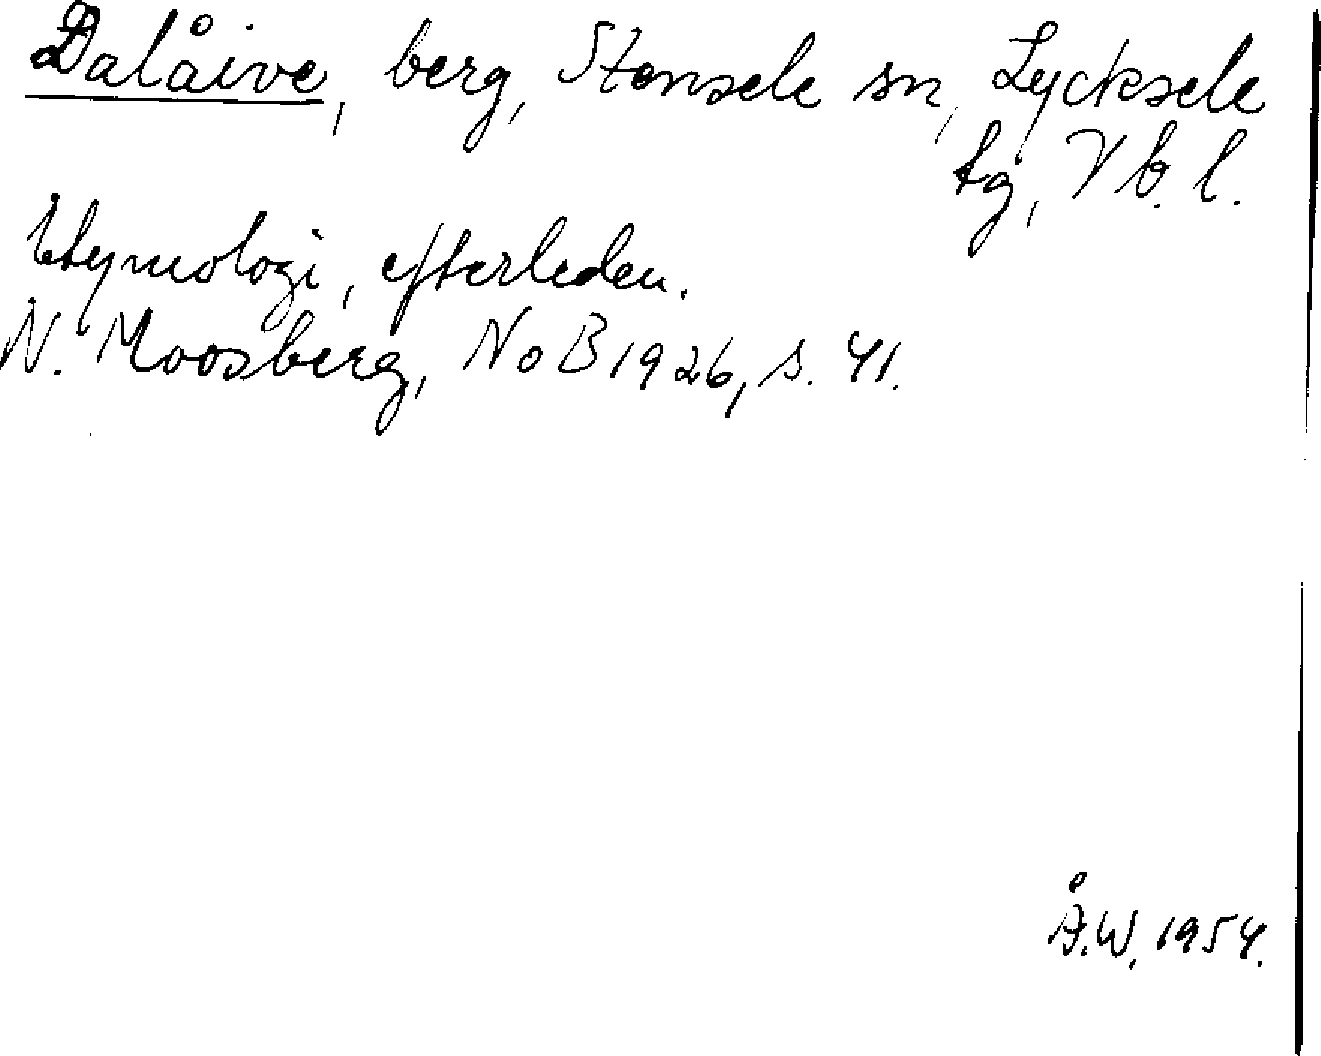 Dalåive, berg, Stensele sn, Lycksele
tg, Vb. l.
Etymologi, efterleden.
N. Moosberg, NoB 1926, s. 41.
Å.W. 1954.